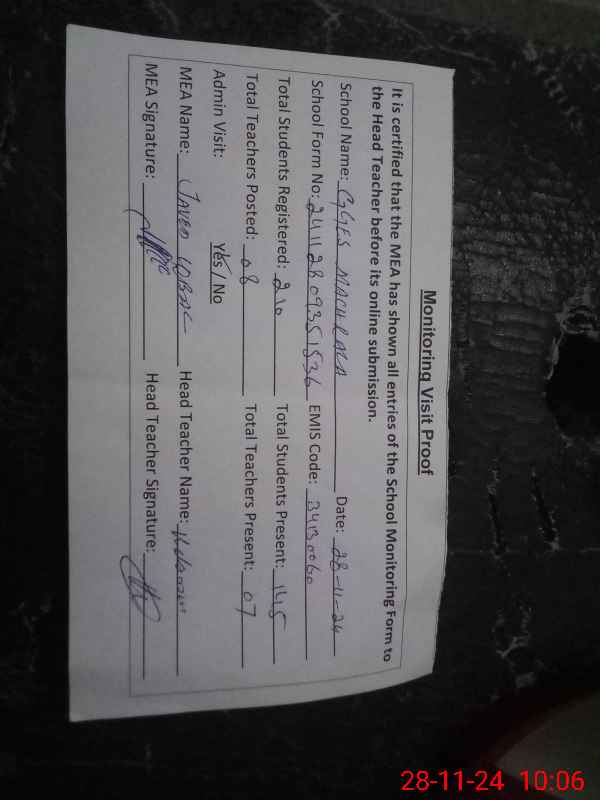 Monitoring Visit Proof
It is certified that the MEA has shown all entries of the School Monitoring Form to
the Head Teacher before its online submission.
School Name: GGES MACHRALA Date: 28-11-24
School Form No: 24112809351536 EMIS Code: 34130060
Total Students Registered: 210 Total Students Present: 145
Total Teachers Posted: 08 Total Teachers Present: 07
Admin Visit: Yes / No
MEA Name: JAVED IQBAL Head Teacher Name:
MEA Signature: Head Teacher Signature:
28-11-24 10:06